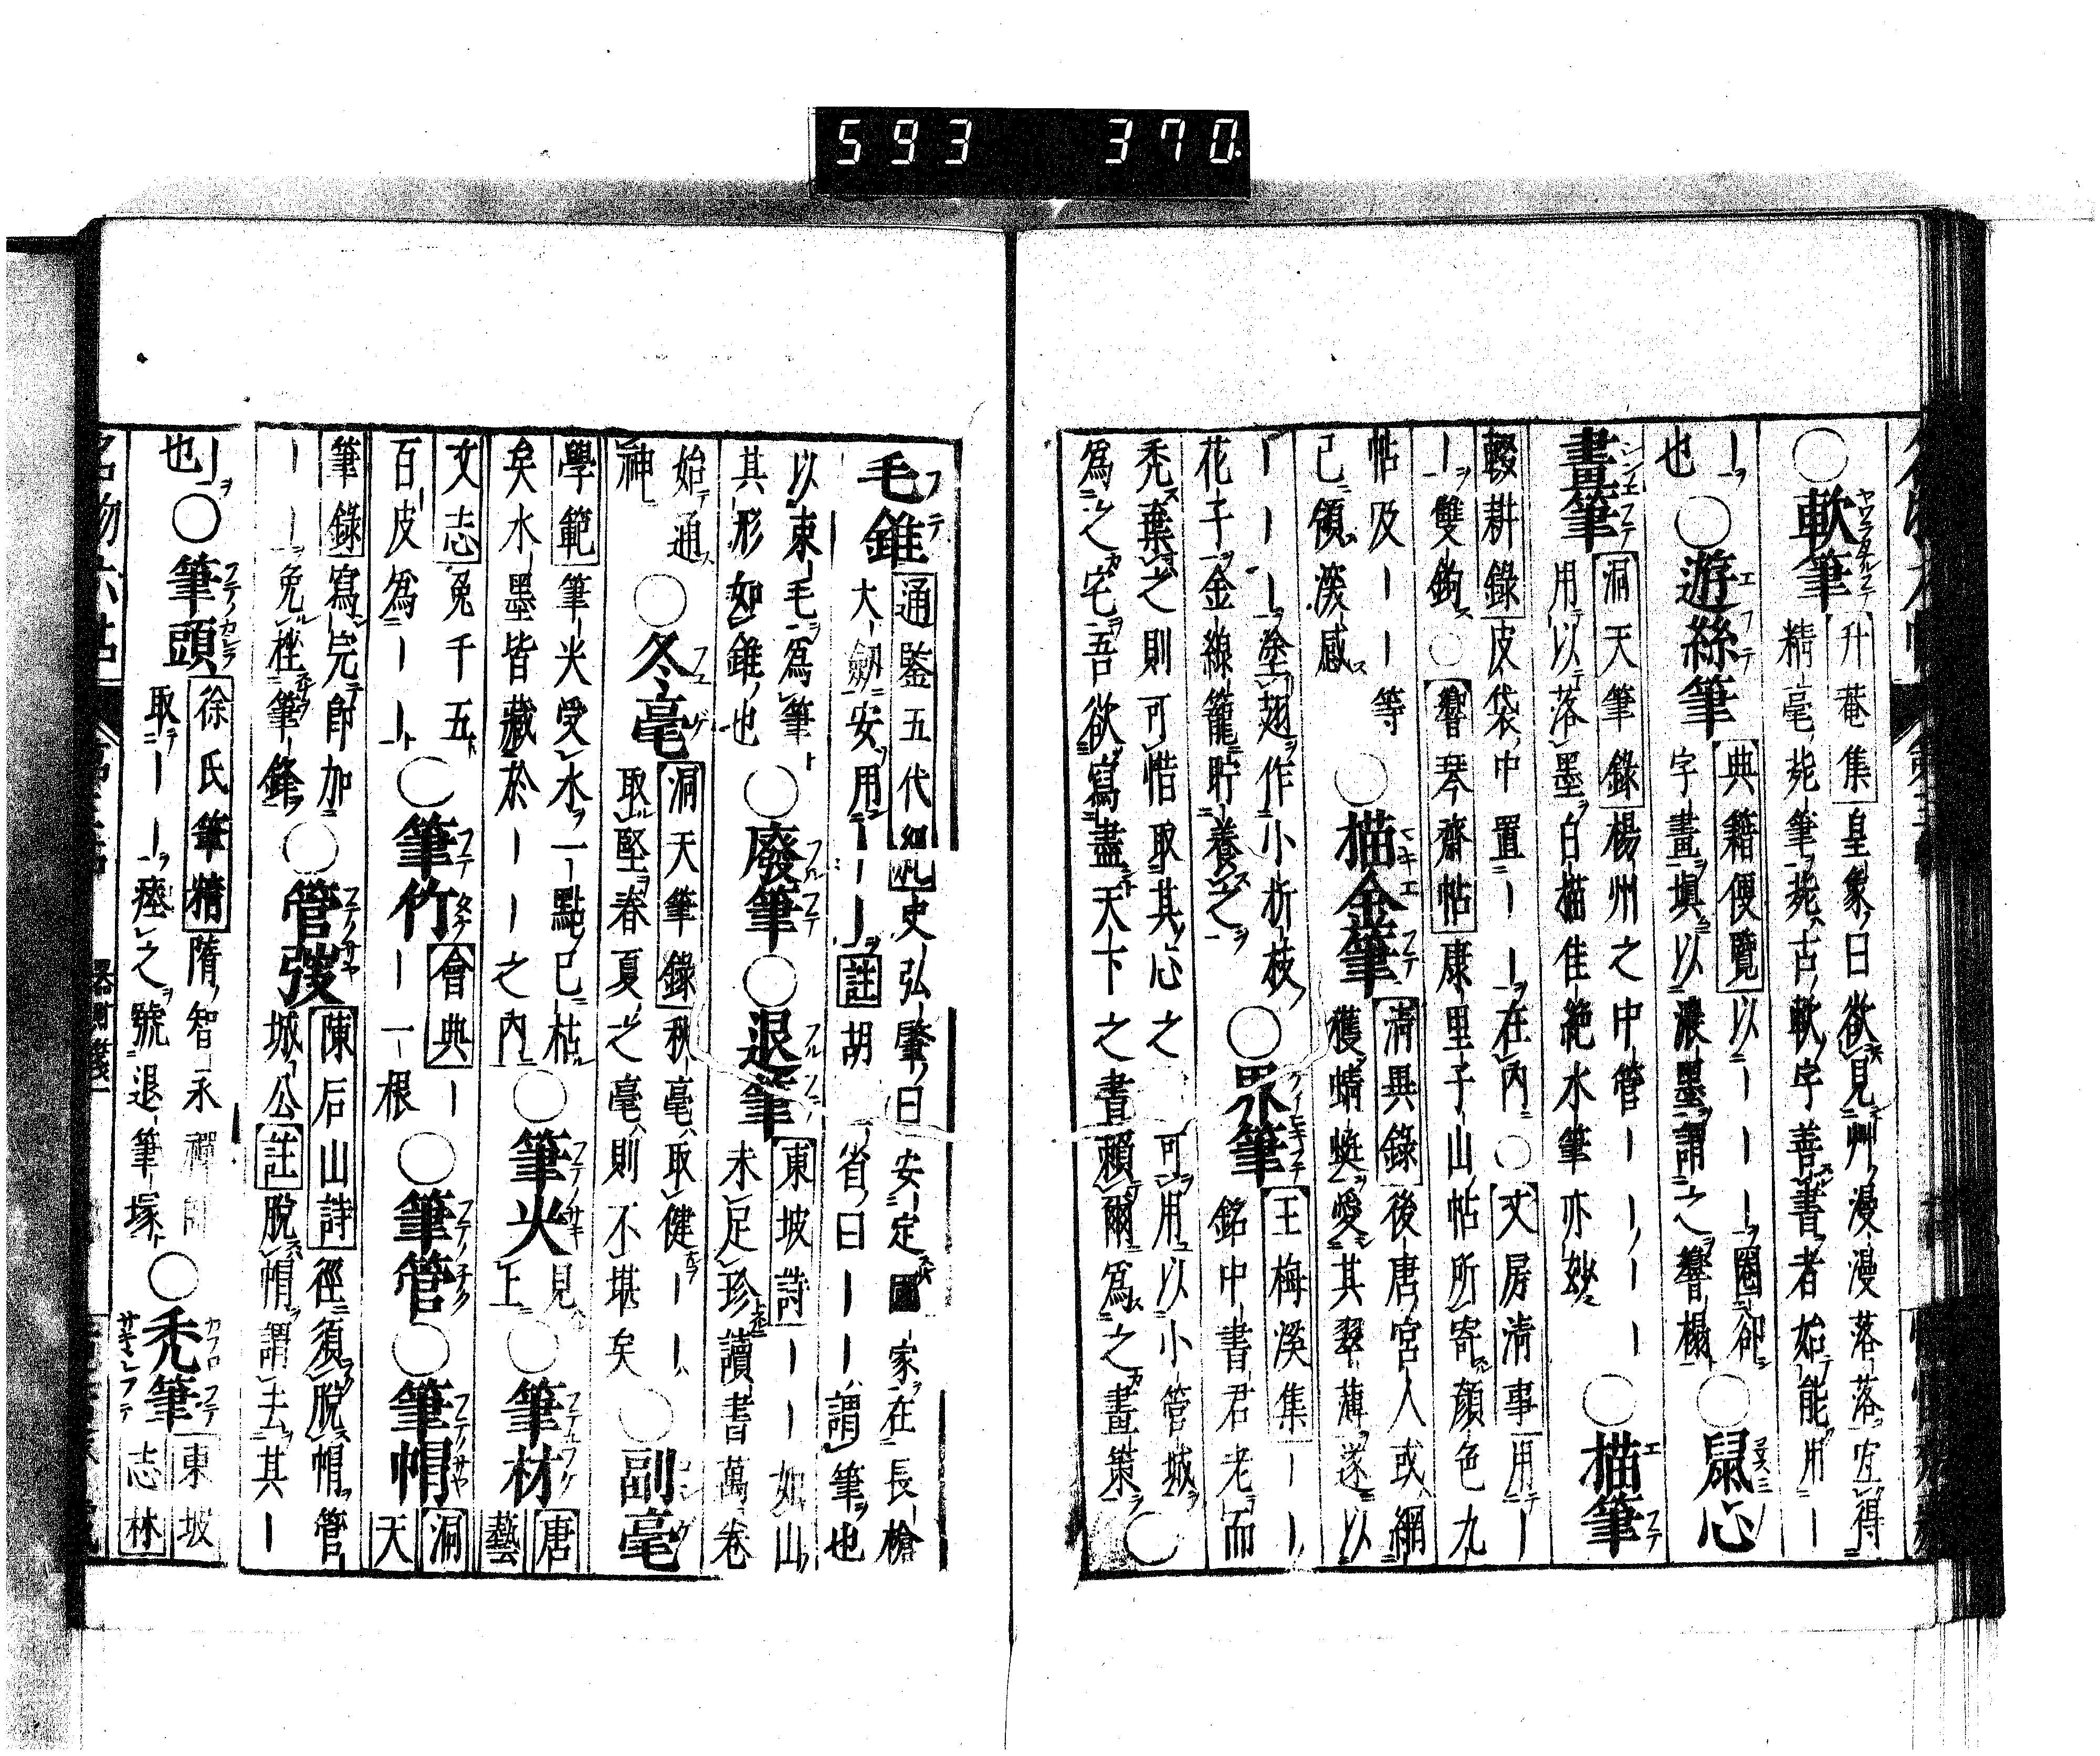 593 370
○軟筆 升菴集 皇象曰欲見艸漫漫落落宜得
精毫㲯筆㲯古軟字善書者始能用ー
ー也○遊絲筆 典籍便覽 以ーーー圈卻
字畫塡以濃墨謂之響榻○鼠心
畫筆 洞天筆錄 楊州之中管ーーーー
用以落墨白描佳絶水筆亦妙○描筆
輟耕錄 皮袋中置ーー在內○文房清事 用ー
ー雙鉤○響琴齋帖 康里子山帖所寄顔色九
帖及ーー等○描金筆 清異錄 後唐宮人或網
已領深感 獲蜻蜓愛其翠薄遂以
ーーー塗翅作小折枝○界筆 王梅溪集 ーー
花子金線籠貯養之 銘中書君老而
禿棄之則可惜取其心之可用以小管城
爲之宅吾欲寫盡天下之書賴爾爲之畫策○
毛錐 通鑑五代紀 史弘肇曰安定國家在長槍
大劔安用ーー 註 胡 省曰ーー謂筆也
以束毛爲筆○廢筆○退筆 東坡詩 ーー如山
其形如錐也 未足珍讀書萬卷
始通○冬毫 洞天筆錄 秋毫取健ーー
神 取堅春夏之毫則不堪矣○副毫
學範 筆尖受水一點已枯○筆尖 見上○筆材 唐藝
矣水墨皆藏於ーー之內
文志 兔千五○筆竹 會典 ー
百皮爲ーー ー一根○筆管○筆帽 洞天
筆錄 寫完卽加○管弢 陳后山詩 徑須脫帽管
ーー免挫筆鋒 城公 註 脫帽謂去其ー
ー也○筆頭 徐氏筆精 隋智永禪師
取ーー瘞之號退筆塚○禿筆 東坡志林